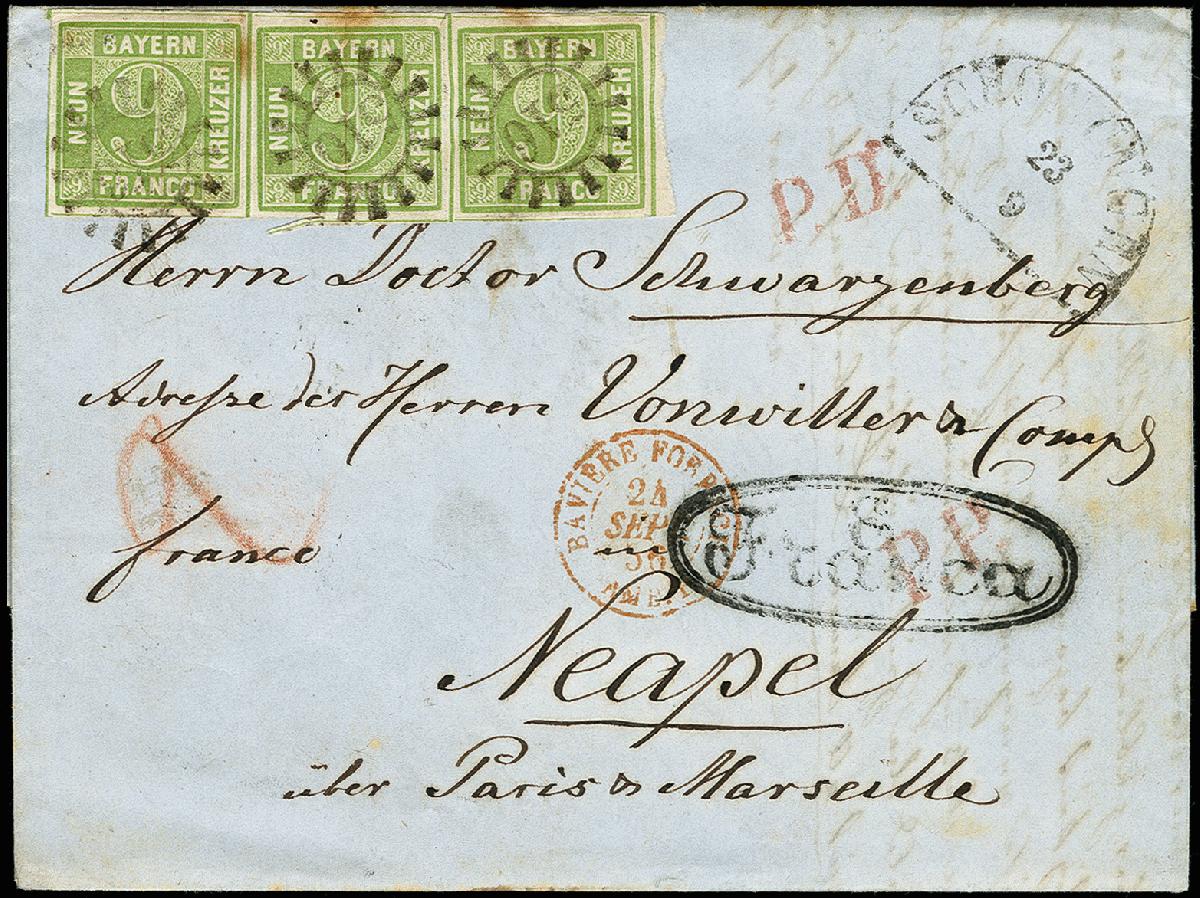 BAYERN BAYERN BAYERN
NEUN 9 KREUZER NEUN 9 KREUZER NEUN 9 KREUZER
FRANCO FRANCO FRANCO
23
9
P.D.
Herrn Doctor Schwarzenberg
Adresse der Herren Vonwiller & Comp
franco in
BAVIERE FORB
24
SEPT
56
P.P.
Franca
Neapel
über Paris & Marseille